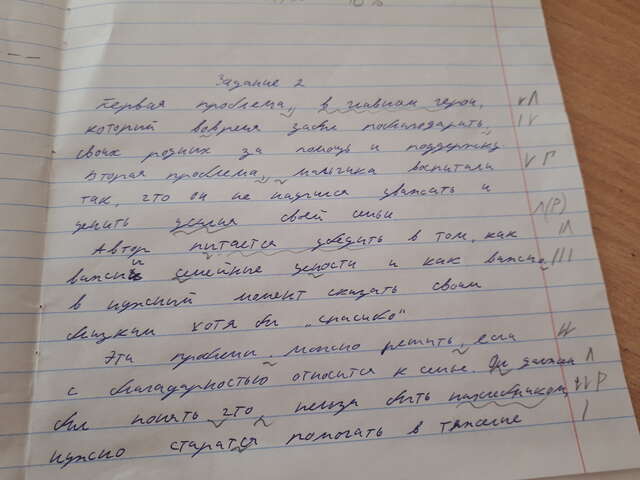 Задание 2
Первая проблема, в главном герои,
который вовремя забыл поблагодарить,
своих родных за помощь и поддержку
Вторая проблема, мальчика воспитали
так, что он не научился уважать и
ценить усилия своей семьи
Автор питается убедить в том, как
важны семейные цености и как важно
в нужный момент сказать своим
близким хотя бы "спасибо"
Эти проблемы, можно решить, если
с благодарностью относится к семье. Он должен
был понять что, нельзя быть
нужно старатся помогать в тяжелые